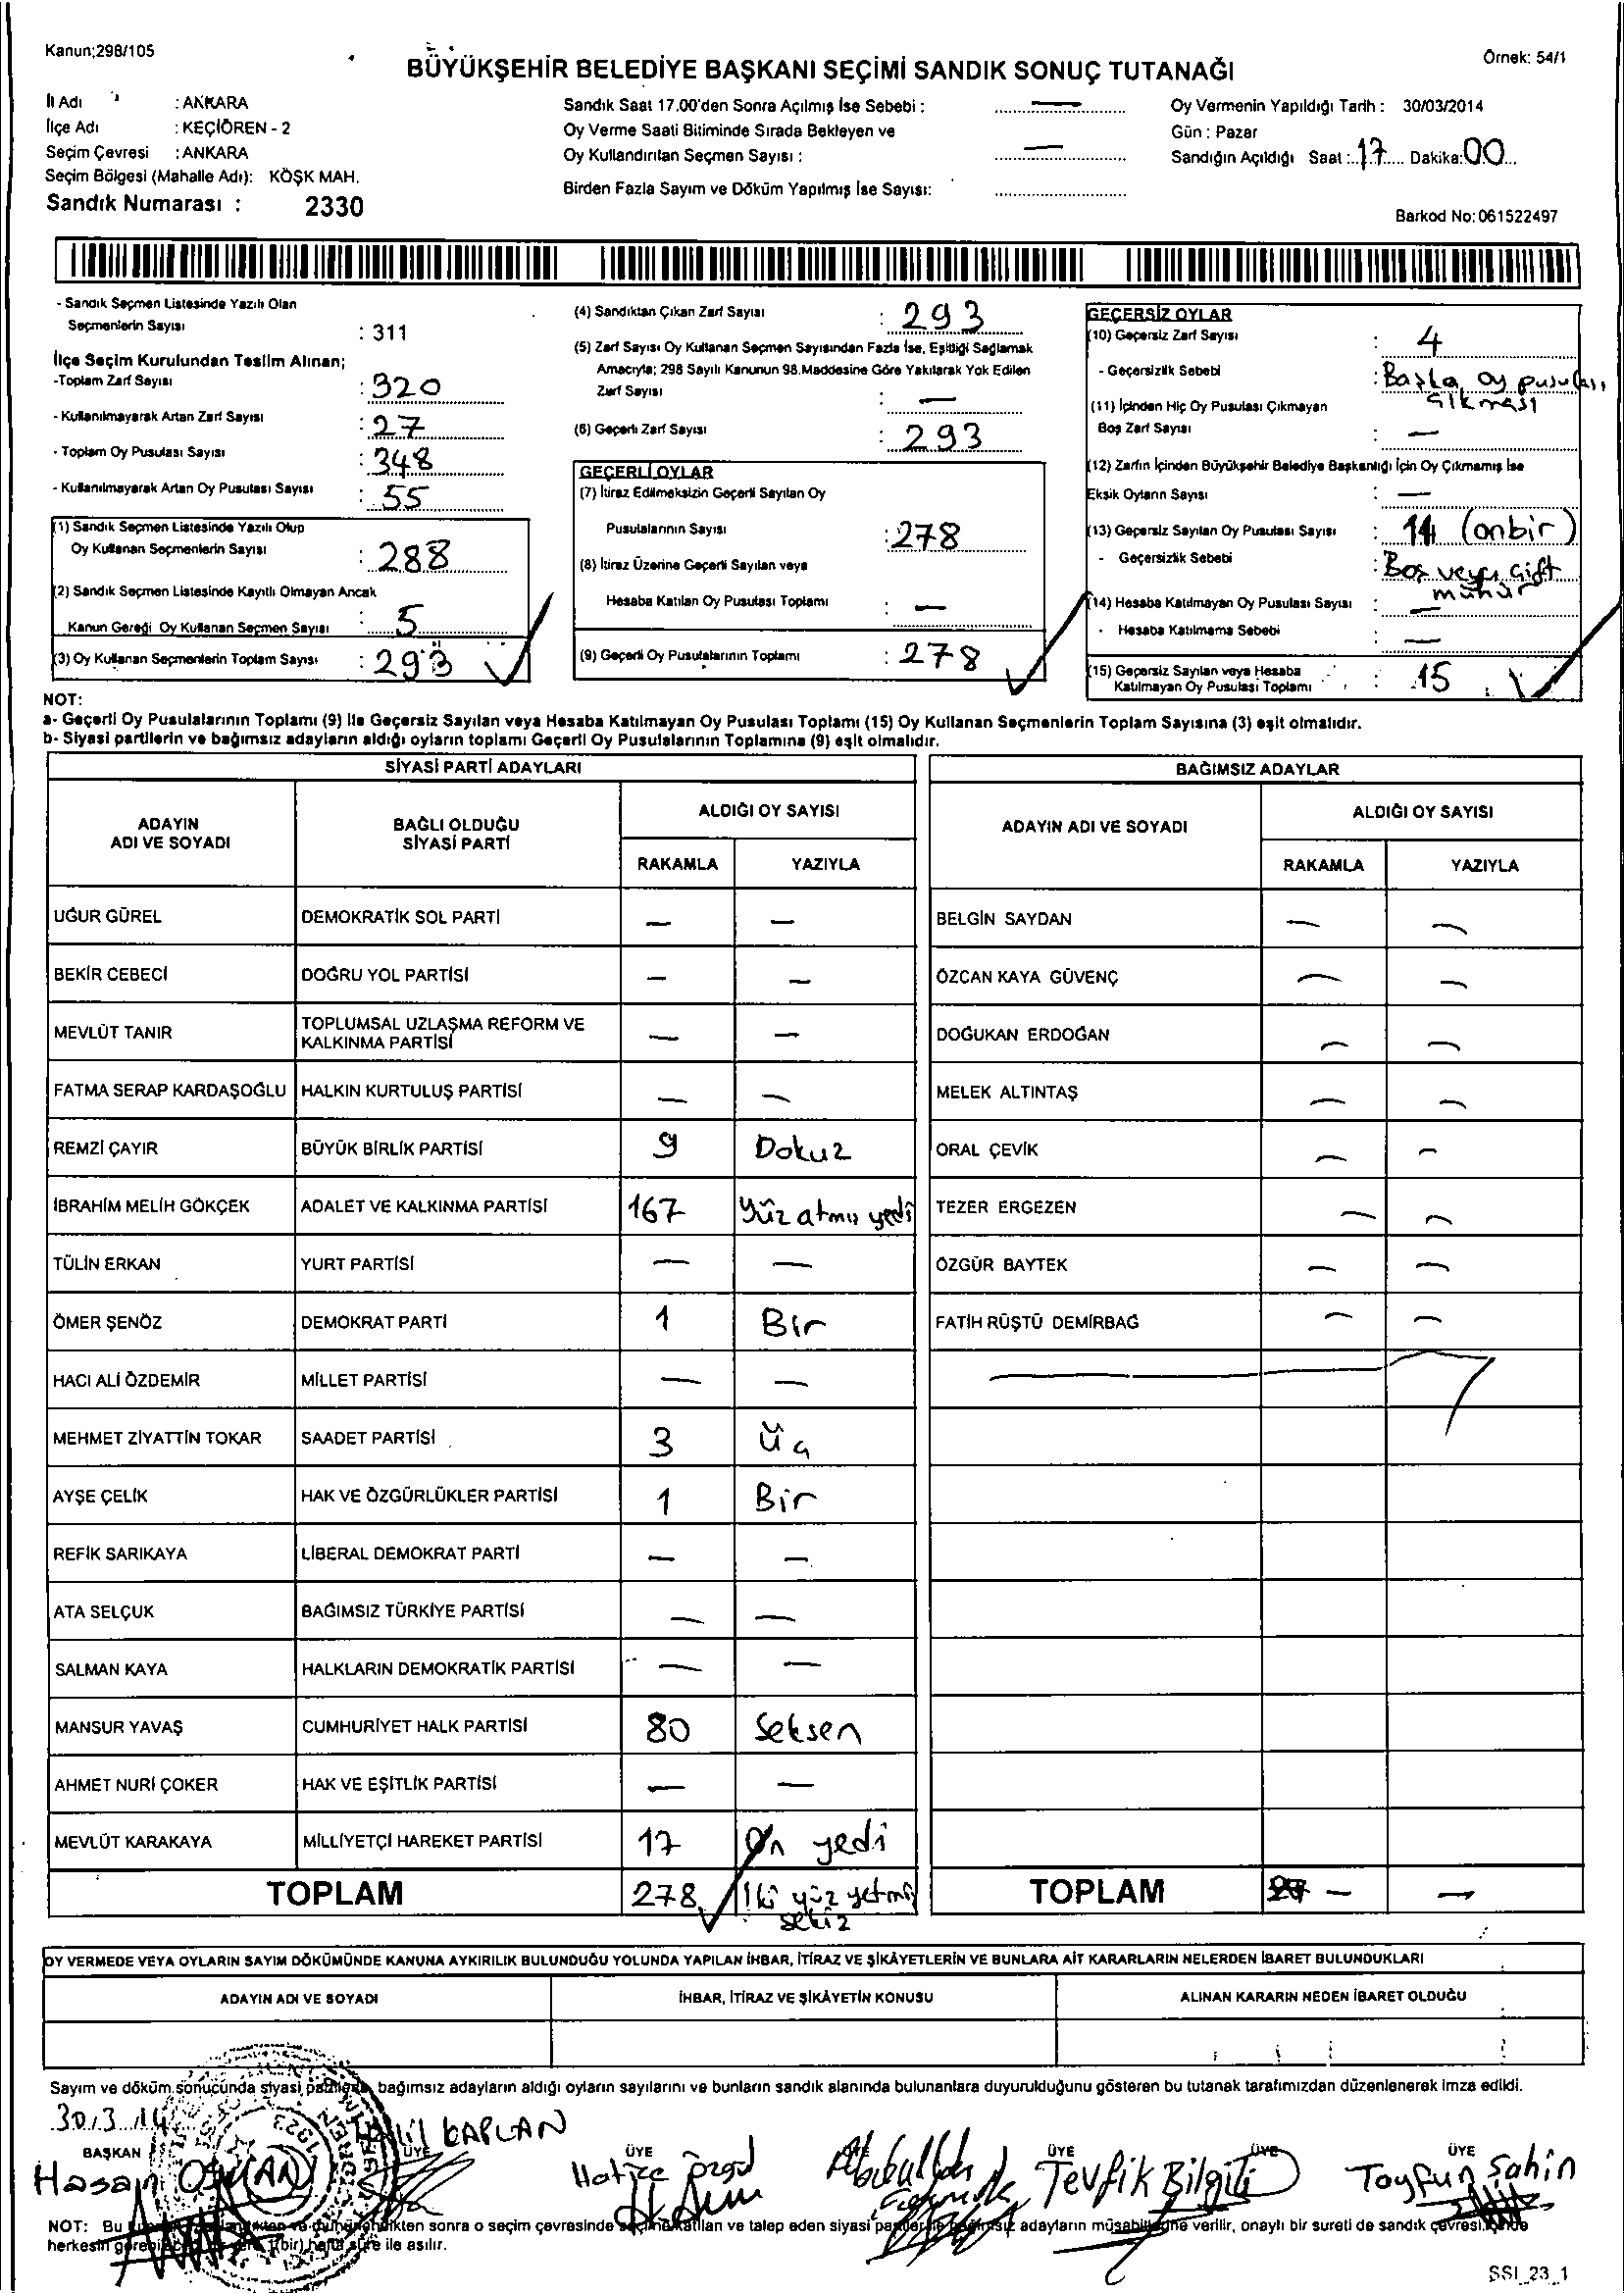 Kanun;298/105
Örnek: 54/1
BÜYÜKŞEHİR BELEDİYE BAŞKANI SEÇİMİ SANDIK SONUÇ TUTANAĞI
İl Adı : ANKARA
İlçe Adı : KEÇİÖREN - 2
Seçim Çevresi : ANKARA
Seçim Bölgesi (Mahalle Adı): KÖŞK MAH.
Sandık Numarası : 2330
Sandık Saat 17.00'den Sonra Açılmış İse Sebebi : —
Oy Verme Saati Bitiminde Sırada Bekleyen ve
Oy Kullandırılan Seçmen Sayısı : —
Birden Fazla Sayım ve Döküm Yapılmış İse Sayısı:
Oy Vermenin Yapıldığı Tarih : 30/03/2014
Gün : Pazar
Sandığın Açıldığı Saat : 17 Dakika: 00
Barkod No: 061522497
- Sandık Seçmen Listesinde Yazılı Olan
Seçmenlerin Sayısı : 311
İlçe Seçim Kurulundan Teslim Alınan;
-Toplam Zarf Sayısı : 320
- Kullanılmayarak Artan Zarf Sayısı : 27
- Toplam Oy Pusulası Sayısı : 348
- Kullanılmayarak Artan Oy Pusulası Sayısı : 55
(1) Sandık Seçmen Listesinde Yazılı Olup
Oy Kullanan Seçmenlerin Sayısı : 288
(2) Sandık Seçmen Listesinde Kayıtlı Olmayan Ancak
Kanun Gereği Oy Kullanan Seçmen Sayısı : 5
(3) Oy Kullanan Seçmenlerin Toplam Sayısı : 293
(4) Sandıktan Çıkan Zarf Sayısı : 293
(5) Zarf Sayısı Oy Kullanan Seçmen Sayısından Fazla İse, Eşitliği Sağlamak
Amacıyla; 298 Sayılı Kanunun 98.Maddesine Göre Yakılarak Yok Edilen
Zarf Sayısı : —
(6) Geçerli Zarf Sayısı : 293
GEÇERLİ OYLAR
(7) İtiraz Edilmeksizin Geçerli Sayılan Oy
Pusulalarının Sayısı : 278
(8) İtiraz Üzerine Geçerli Sayılan veya
Hesaba Katılan Oy Pusulası Toplamı : —
(9) Geçerli Oy Pusulalarının Toplamı : 278
GEÇERSİZ OYLAR
(10) Geçersiz Zarf Sayısı : 4
- Geçersizlik Sebebi : Başka oy pusulası
çıkması
(11) İçinden Hiç Oy Pusulası Çıkmayan
Boş Zarf Sayısı : —
(12) Zarfın İçinden Büyükşehir Belediye Başkanlığı İçin Oy Çıkmamış İse
Eksik Oyların Sayısı : —
(13) Geçersiz Sayılan Oy Pusulası Sayısı : 11 (onbir)
- Geçersizlik Sebebi : Boş veya çift
mühür
(14) Hesaba Katılmayan Oy Pusulası Sayısı : —
- Hesaba Katılmama Sebebi : —
(15) Geçersiz Sayılan veya Hesaba
Katılmayan Oy Pusulası Toplamı : 15
NOT:
a- Geçerli Oy Pusulalarının Toplamı (9) ile Geçersiz Sayılan veya Hesaba Katılmayan Oy Pusulası Toplamı (15) Oy Kullanan Seçmenlerin Toplam Sayısına (3) eşit olmalıdır.
b- Siyasi partilerin ve bağımsız adayların aldığı oyların toplamı Geçerli Oy Pusulalarının Toplamına (9) eşit olmalıdır.
SİYASİ PARTİ ADAYLARI
ADAYIN ADI VE SOYADI BAĞLI OLDUĞU SİYASİ PARTİ ALDIĞI OY SAYISI
RAKAMLA YAZIYLA
UĞUR GÜREL DEMOKRATİK SOL PARTİ — —
BEKİR CEBECİ DOĞRU YOL PARTİSİ — —
MEVLÜT TANIR TOPLUMSAL UZLAŞMA REFORM VE KALKINMA PARTİSİ — —
FATMA SERAP KARDAŞOĞLU HALKIN KURTULUŞ PARTİSİ — —
REMZİ ÇAYIR BÜYÜK BİRLİK PARTİSİ 9 Dokuz
İBRAHİM MELİH GÖKÇEK ADALET VE KALKINMA PARTİSİ 167 Yüz atmış yedi
TÜLİN ERKAN YURT PARTİSİ — —
ÖMER ŞENÖZ DEMOKRAT PARTİ 1 Bir
HACI ALİ ÖZDEMİR MİLLET PARTİSİ — —
MEHMET ZİYATTİN TOKAR SAADET PARTİSİ 3 Üç
AYŞE ÇELİK HAK VE ÖZGÜRLÜKLER PARTİSİ 1 Bir
REFİK SARIKAYA LİBERAL DEMOKRAT PARTİ — —
ATA SELÇUK BAĞIMSIZ TÜRKİYE PARTİSİ — —
SALMAN KAYA HALKLARIN DEMOKRATİK PARTİSİ — —
MANSUR YAVAŞ CUMHURİYET HALK PARTİSİ 80 Seksen
AHMET NURİ ÇOKER HAK VE EŞİTLİK PARTİSİ — —
MEVLÜT KARAKAYA MİLLİYETÇİ HAREKET PARTİSİ 17 On yedi
TOPLAM 278 İki yüz yetmiş
sekiz
BAĞIMSIZ ADAYLAR
ADAYIN ADI VE SOYADI ALDIĞI OY SAYISI
RAKAMLA YAZIYLA
BELGİN SAYDAN — —
ÖZCAN KAYA GÜVENÇ — —
DOĞUKAN ERDOĞAN — —
MELEK ALTINTAŞ — —
ORAL ÇEVİK — —
TEZER ERGEZEN — —
ÖZGÜR BAYTEK — —
FATİH RÜŞTÜ DEMİRBAĞ — —
TOPLAM — —
OY VERMEDE VEYA OYLARIN SAYIM DÖKÜMÜNDE KANUNA AYKIRILIK BULUNDUĞU YOLUNDA YAPILAN İHBAR, İTİRAZ VE ŞİKÂYETLERİN VE BUNLARA AİT KARARLARIN NELERDEN İBARET BULUNDUKLARI
ADAYIN ADI VE SOYADI İHBAR, İTİRAZ VE ŞİKÂYETİN KONUSU ALINAN KARARIN NEDEN İBARET OLDUĞU
Sayım ve döküm sonucunda siyasi bağımsız adayların aldığı oyların sayılarını ve bunların sandık alanında bulunanlara duyurulduğunu gösteren bu tutanak tarafımızdan düzenlenerek imza edildi.
30.3.14
BAŞKAN ÜYE ÜYE ÜYE ÜYE ÜYE
Hasan KAPLAN Hatice Tevfik Bilgili Tayfun Şahin
NOT: Bu sonra o seçim çevresinde seçime katılan ve talep eden siyasi adayların müşahitlerine verilir, onaylı bir sureti de sandık çevresinde
herkesin (bir) hafta süre ile asılır.
SSI_23_1